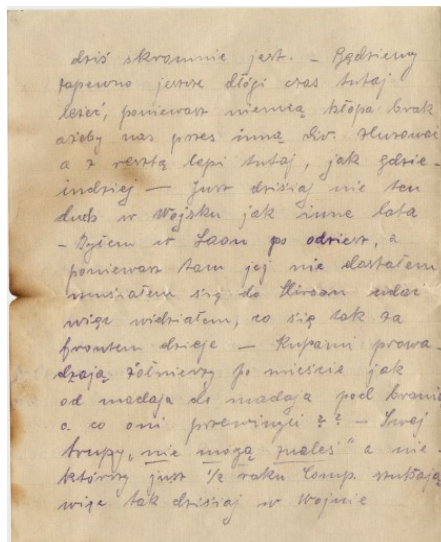 dziś skromnie jest. – Będziemy
zapewno jeszcze dłógi czas tutaj
leżeć, poniewasz niemcą hłopa brak
ażeby nas przes inną div. zluzować
a z resztą lepi tutaj, jak gdzie-
indziej – Jusz dzisiaj nie ten
duch w Wojsku jak inne lata
– Byłem w Laon po odziesz, a
poniewasz tam jej nie dostałem
musiałem się do Hirson udać
więc widziałem, co się tak za
frontem dzieje – Kupami prowa-
dzają żołnierzy po mieście jak
od madaja do madaja pod bronią
a co oni przewinyli ?? – Swej
trupy „nie mogą znaleś" a nie-
którzy jusz ½ raku Comp. szukają
więc tak dzisiaj w Wojnie